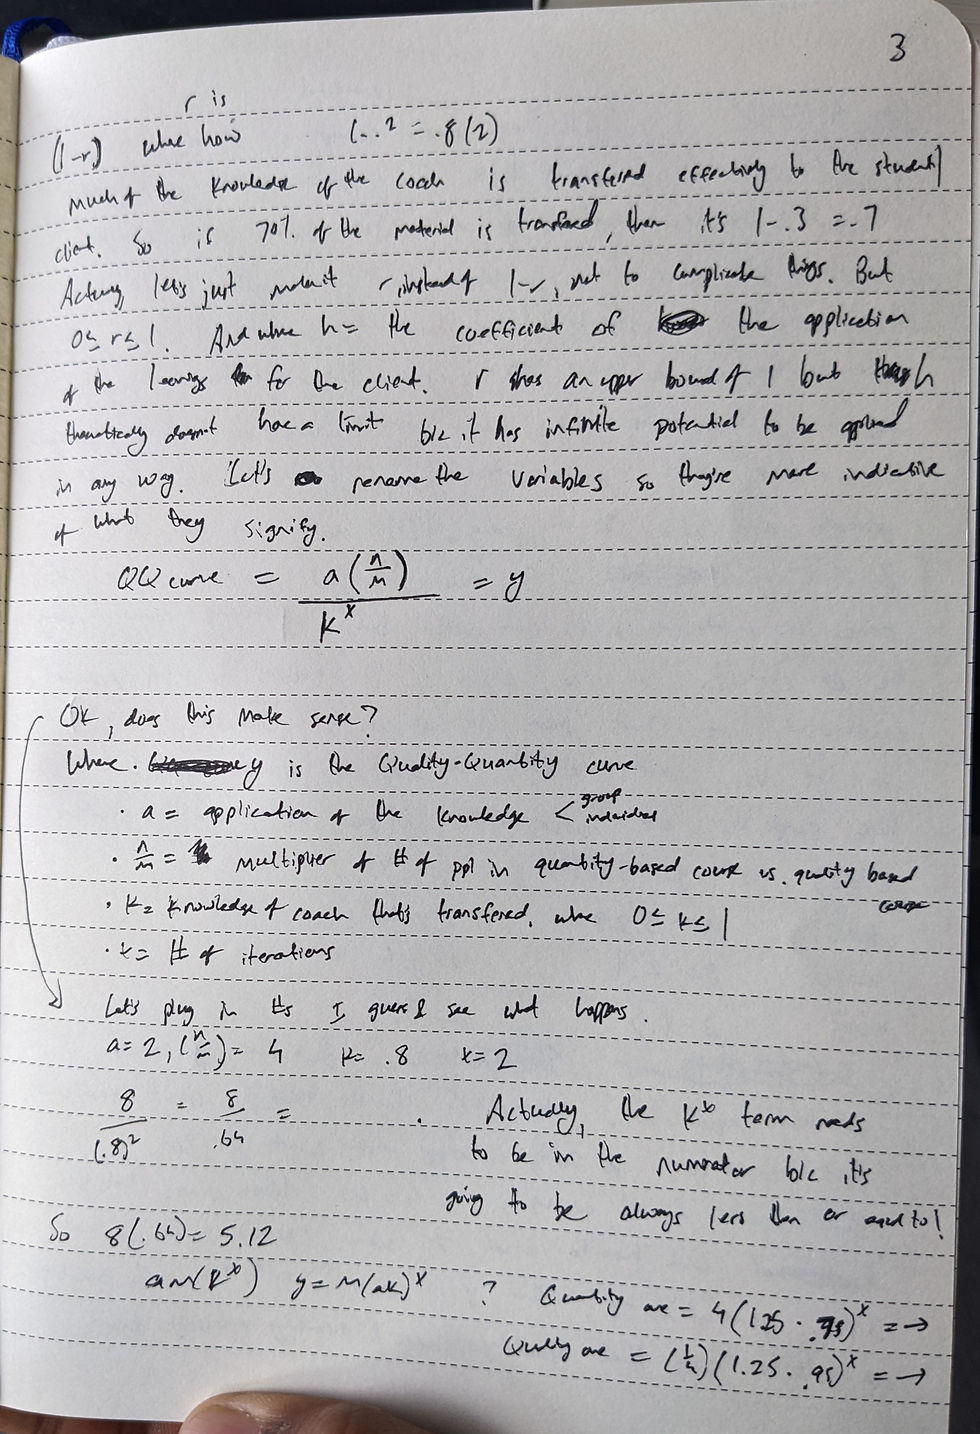 3
r is
(1-r) where how (...² = .8(2)
much of the knowledge of the coach is transferred effectively to the student/
client. So is 70% of the material is transfered, then it's 1-.3 = .7
Actually, let's just make it r instead of 1-r, not to complicate things. But
0 ≤ r ≤ 1. And where h = the coefficient of the application
of the learnings for the client. r has an upper bound of 1 but h
theoretically doesn't have a limit b/c it has infinite potential to be applied
in any way. Let's rename the variables so they're more indicative
of what they signify.
QQ curve = a(n/m) / k^x = y
OK, does this make sense?
Where · y is the Quality-Quantity curve
· a = application of the knowledge < group individual
· n/m = multiplier of # of ppl in quantity-based course vs. quality based
course
· k = knowledge of coach that's transfered, where 0 ≤ k ≤ 1
· x = # of iterations
Let's plug in #s I guess & see what happens.
a = 2, (n/m) = 4 k = .8 x = 2
8/(.8)² = 8/.64 = . Actually, the k^x term needs
to be in the numerator b/c it's
going to be always less than or equal to 1
So 8(.64) = 5.12
am(k^x) y = m(ak)^x ? Quantity one = 4(1.25 · .75)^x = →
Quality one = (1/4)(1.25 · .95)^x = →